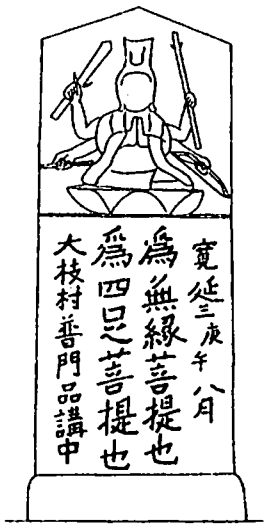 寛延三庚午八月
為無縁菩提也
為四足菩提也
大枝村普門品講中